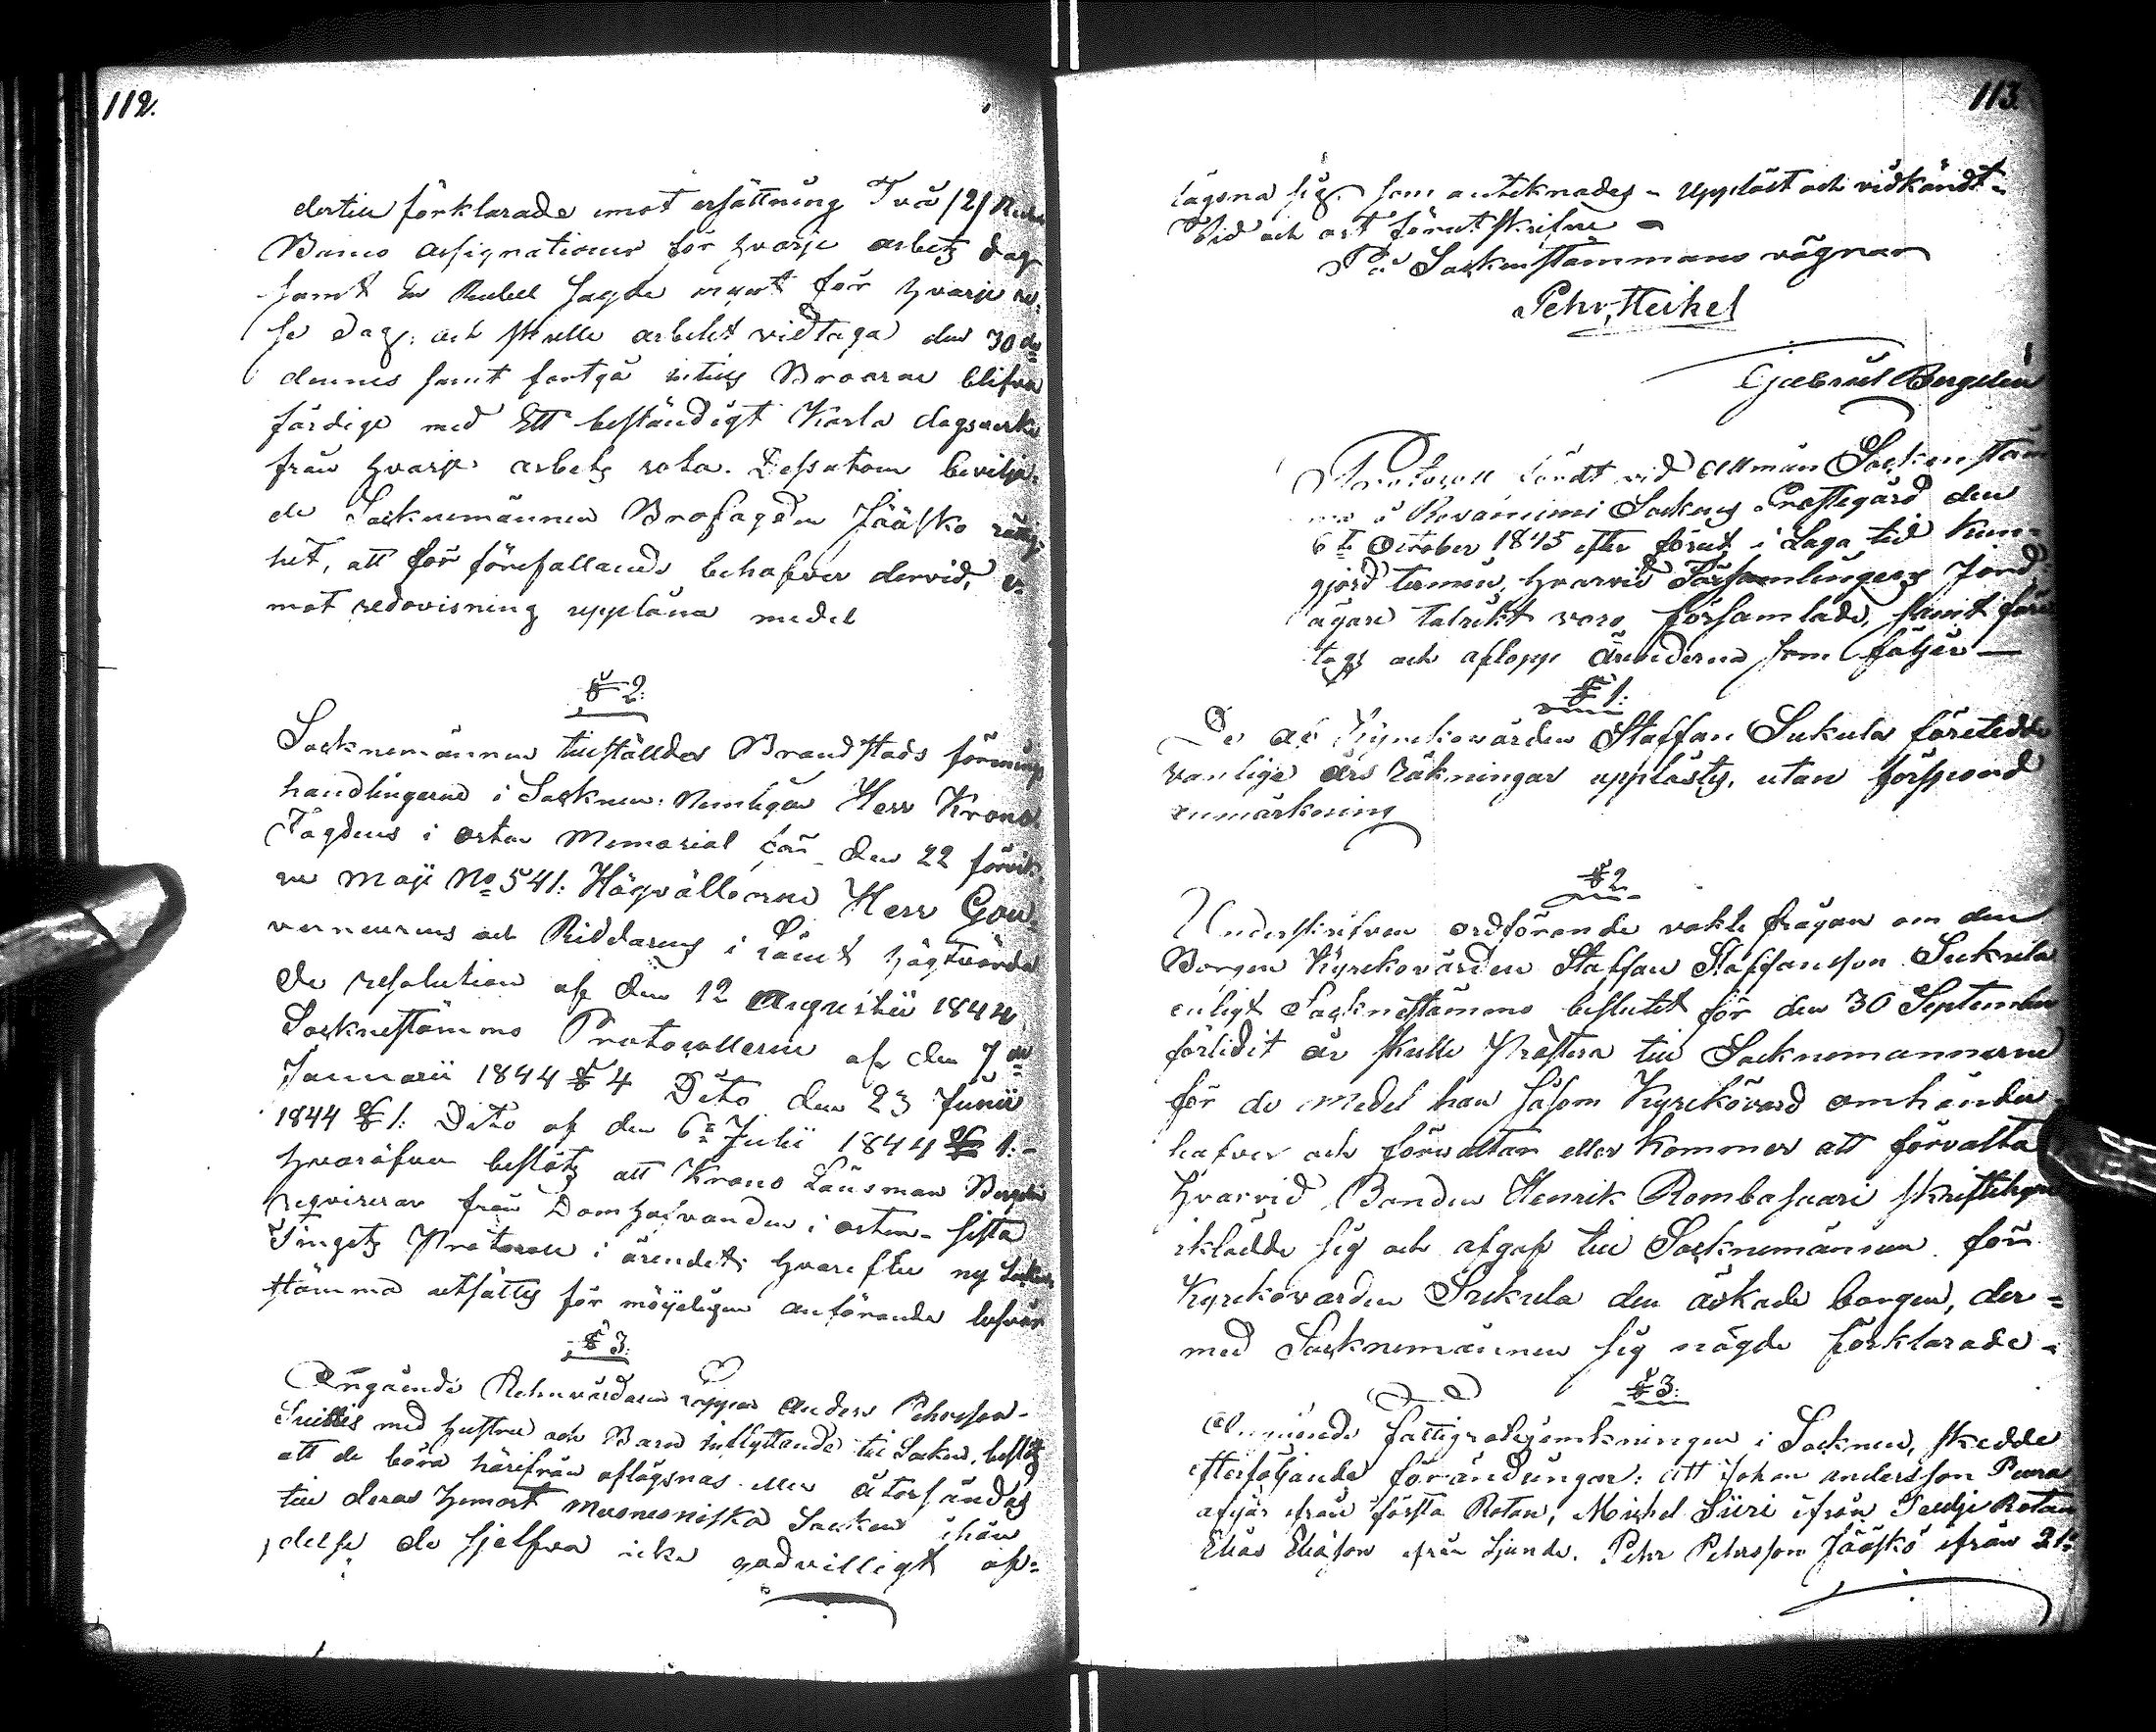 112.
dertill förklarade emot ersättning Två /2/
Banco assignationer för hvarje arbets dag
samt En Rubel Sagde mynt för hvarje re-
se dag: och skulle arbetet vidtaga den 30de
dennes samt fortgå intills Broarne blifva
färdige med Ett beständigt Karla dagsverke
från hvarje arbets rota. Dessutom bevilja-
de Socknemännen Brofogden Jääskö rättig-
het, att för förefallande behofver dervid, e-
mot redovisning upplåna medel
§ 2:
Socknemännen tillställdes Brandstods förenings
handlingarne i Socknen: Nemligen Herr Krono
Fogdens i orten Memorial för den 22
ne Maji No 541: Högvällborne Herr Gou-
verneurens och Riddarens i Länet högtvörda
de resolution af den 12 Augusti 1844
Socknestämmo Protocollerne af den 7de
Januarii 1844 § 4 Dito den 23 Junii
1844 § 1: Dito af den 6te Julii 1844 § 1:-
hvaröfver beslöts att Krono Länsman Bergelin
reqvirerar från Domhafvanden i orten sista
Tingets Protocoll i ärendet; hvarefter ny Sockne
stämma utsättes för möjeligen anförande besvär
§ 3:
Angående Rehnvårdaren Anders Pehrsson
med hustru och Barn inflyttande till Socken, beslöts
att de böra härifrån aflägsnas eller återsändas
till deras hemort Muonioniska Socken ihän
delse de sjelfva icke godvilligt af-
113.
lägsna sig. som antecknades - Uppläst och vidkändt -
Tid och ort förut skrifne
På Sockenstämmans vägnar
Pehr Heikel
Gabriel Bergelin
Protocoll hördt vid Allmän Sockenstäm
ma å Rovaniemi Sockens Prestegård den
6te October 1845 efter förut i Laga tid kun-
gjord termin, hvarvid Församlingens Jord-
ägare talrikt voro församlade, samt före
togs och aflopp ärenderne som följer —
§ 1:
De af Kyrkovärden Staffan Sukula företedde
vanliga års räkningar upplästes, utan förspord
anmärkning
§ 2
Underskrifven ordförande vakte frågan om den
Borgen Kyrkovärden Staffan Staffansson Sukula
enligt Socknestämmo beslutet för den 30 September
förledit år skulle præstera till Socknemännerne
för de medel han såsom Kyrkovärd omhänder
hafver och förvaltar eller kommer att förvalta
hvarvid Bonden Henrik Rombasaari skriftligen
ikladde sig och afgaf till Socknemännen för
Kyrkovärden Sukula den äskade borgen, der-
med Socknemännen sig nögde förklarade -
§ 3:
Angående fattigrotejemkningen i Socknen, skedde
efterföljande förändringar: att Johan Andersson Pura
afgår ifrån första Rotan, Michel Siiri ifrån Tredje Rotan
Elias Eliasson ifrån Sjunde. Pehr Pehrsson Jääskö ifrån 21: